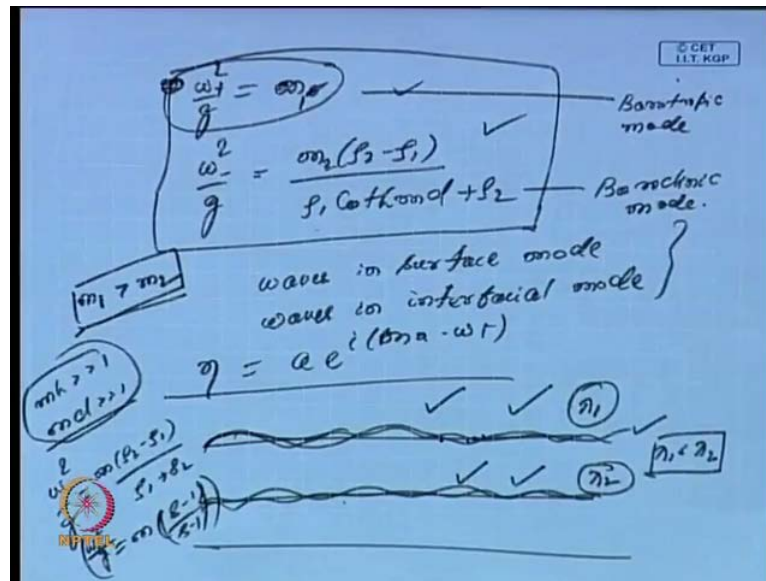 © CET
I.I.T. KGP
ω₊²/g = m₁
Barotropic mode
ω₋²/g = m₂(ρ₂-ρ₁)/(ρ₁ Coth md + ρ₂)
Baroclinic mode.
m₁ < m₂
waves in surface mode
waves in interfacial mode
η = a e^{i(mx - ωt)}
mh >> 1
md >> 1
λ₁
λ₁ < λ₂
λ₂
m(ρ₂-ρ₁)/(ρ₁+ρ₂)
NPTEL